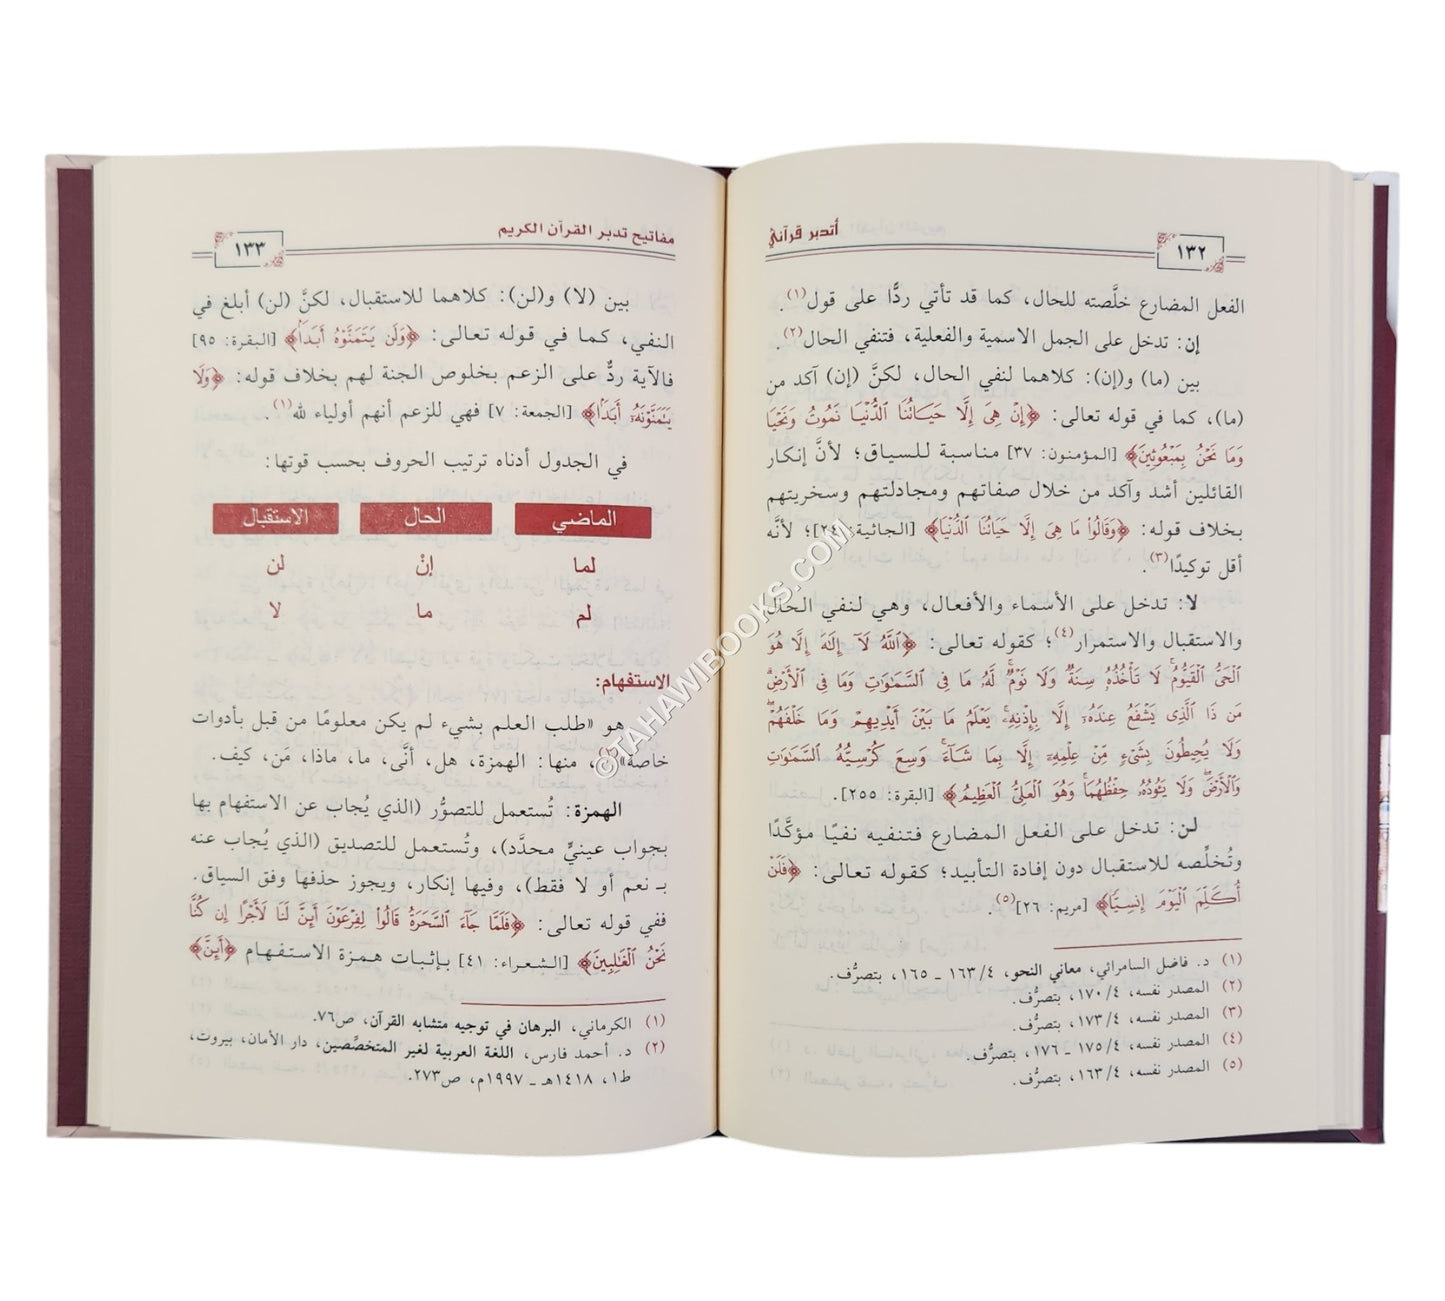 أتدبر قرآني
١٣٢
الفعل المضارع خلَّصته للحال، كما قد تأتي ردًّا على قول(١).
إن: تدخل على الجمل الاسمية والفعلية، فتنفي الحال(٢).
بين (ما) و(إن): كلاهما لنفي الحال، لكنَّ (إن) آكد من
(ما)، كما في قوله تعالى: ﴿إِنْ هِيَ إِلَّا حَيَاتُنَا الدُّنْيَا نَمُوتُ وَنَحْيَا
وَمَا نَحْنُ بِمَبْعُوثِينَ﴾ [المؤمنون: ٣٧] مناسبة للسياق؛ لأنَّ إنكار
القائلين أشد وآكد من خلال صفاتهم ومجادلتهم وسخريتهم
بخلاف قوله: ﴿وَقَالُوا مَا هِيَ إِلَّا حَيَاتُنَا الدُّنْيَا﴾ [الجاثية: ٢٤]؛ لأنَّه
أقل توكيدًا(٣).
لا: تدخل على الأسماء والأفعال، وهي لنفي الحال
والاستقبال والاستمرار(٤)؛ كقوله تعالى: ﴿اللَّهُ لَا إِلَهَ إِلَّا هُوَ
الْحَيُّ الْقَيُّومُ لَا تَأْخُذُهُ سِنَةٌ وَلَا نَوْمٌ لَهُ مَا فِي السَّمَاوَاتِ وَمَا فِي الْأَرْضِ
مَن ذَا الَّذِي يَشْفَعُ عِندَهُ إِلَّا بِإِذْنِهِ يَعْلَمُ مَا بَيْنَ أَيْدِيهِمْ وَمَا خَلْفَهُمْ
وَلَا يُحِيطُونَ بِشَيْءٍ مِّنْ عِلْمِهِ إِلَّا بِمَا شَاءَ وَسِعَ كُرْسِيُّهُ السَّمَاوَاتِ
وَالْأَرْضَ وَلَا يَئُودُهُ حِفْظُهُمَا وَهُوَ الْعَلِيُّ الْعَظِيمُ﴾ [البقرة: ٢٥٥].
لن: تدخل على الفعل المضارع فتنفيه نفيًا مؤكَّدًا
وتُخلِّصه للاستقبال دون إفادة التأبيد؛ كقوله تعالى: ﴿فَلَنْ
أُكَلِّمَ الْيَوْمَ إِنسِيًّا﴾ [مريم: ٢٦](٥).
(١) د. فاضل السامرائي، معاني النحو، ٤/١٦٣ - ١٦٥، بتصرُّف.
(٢) المصدر نفسه، ٤/١٧٠، بتصرُّف.
(٣) المصدر نفسه، ٤/١٧٣، بتصرُّف.
(٤) المصدر نفسه، ٤/١٧٥ - ١٧٦، بتصرُّف.
(٥) المصدر نفسه، ٤/١٦٣، بتصرُّف.
مفاتيح تدبر القرآن الكريم
١٣٣
بين (لا) و(لن): كلاهما للاستقبال، لكنَّ (لن) أبلغ في
النفي، كما في قوله تعالى: ﴿وَلَن يَتَمَنَّوْهُ أَبَدًا﴾ [البقرة: ٩٥]
فالآية ردٌّ على الزعم بخلوص الجنة لهم بخلاف قوله: ﴿وَلَا
يَتَمَنَّوْنَهُ أَبَدًا﴾ [الجمعة: ٧] فهي للزعم أنهم أولياء لله(١).
في الجدول أدناه ترتيب الحروف بحسب قوتها:
الماضي الحال الاستقبال
لما إنْ لن
لم ما لا
الاستفهام:
هو «طلب العلم بشيء لم يكن معلومًا من قبل بأدوات
خاصة»(٢)، منها: الهمزة، هل، أنَّى، ما، ماذا، مَن، كيف.
الهمزة: تُستعمل للتصوُّر (الذي يُجاب عن الاستفهام بها
بجواب عينيٍّ محدَّد)، وتُستعمل للتصديق (الذي يُجاب عنه
بـ نعم أو لا فقط)، وفيها إنكار، ويجوز حذفها وفق السياق.
ففي قوله تعالى: ﴿فَلَمَّا جَاءَ السَّحَرَةُ قَالُوا لِفِرْعَوْنَ أَئِنَّ لَنَا لَأَجْرًا إِن كُنَّا
نَحْنُ الْغَالِبِينَ﴾ [الشعراء: ٤١] بإثبات همزة الاستفهام ﴿أَئِنَّ﴾
(١) الكرماني، البرهان في توجيه متشابه القرآن، ص٧٦.
(٢) د. أحمد فارس، اللغة العربية لغير المتخصِّصين، دار الأمان، بيروت،
ط١، ١٤١٨هـ - ١٩٩٧م، ص٢٧٣.
©TAHAWIBOOKS.COM